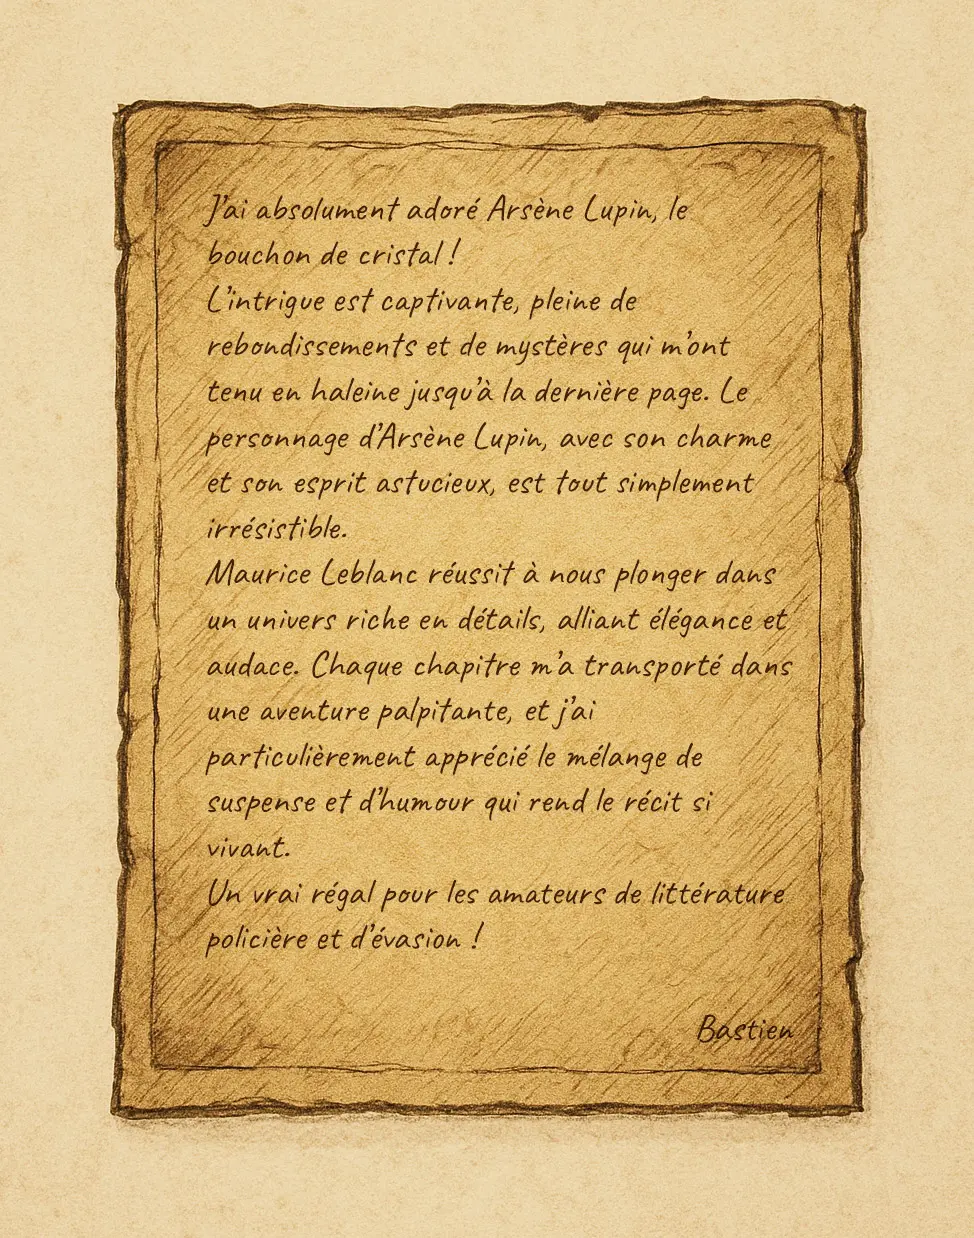 J'ai absolument adoré Arsène Lupin, le
bouchon de cristal !
L'intrigue est captivante, pleine de
rebondissements et de mystères qui m'ont
tenu en haleine jusqu'à la dernière page. Le
personnage d'Arsène Lupin, avec son charme
et son esprit astucieux, est tout simplement
irrésistible.
Maurice Leblanc réussit à nous plonger dans
un univers riche en détails, alliant élégance et
audace. Chaque chapitre m'a transporté dans
une aventure palpitante, et j'ai
particulièrement apprécié le mélange de
suspense et d'humour qui rend le récit si
vivant.
Un vrai régal pour les amateurs de littérature
policière et d'évasion !
Bastien